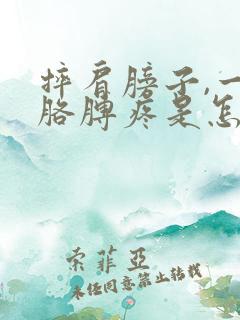 摔肩膀子,一
胳膊疼是怎
索菲亞
未经同意禁止转载